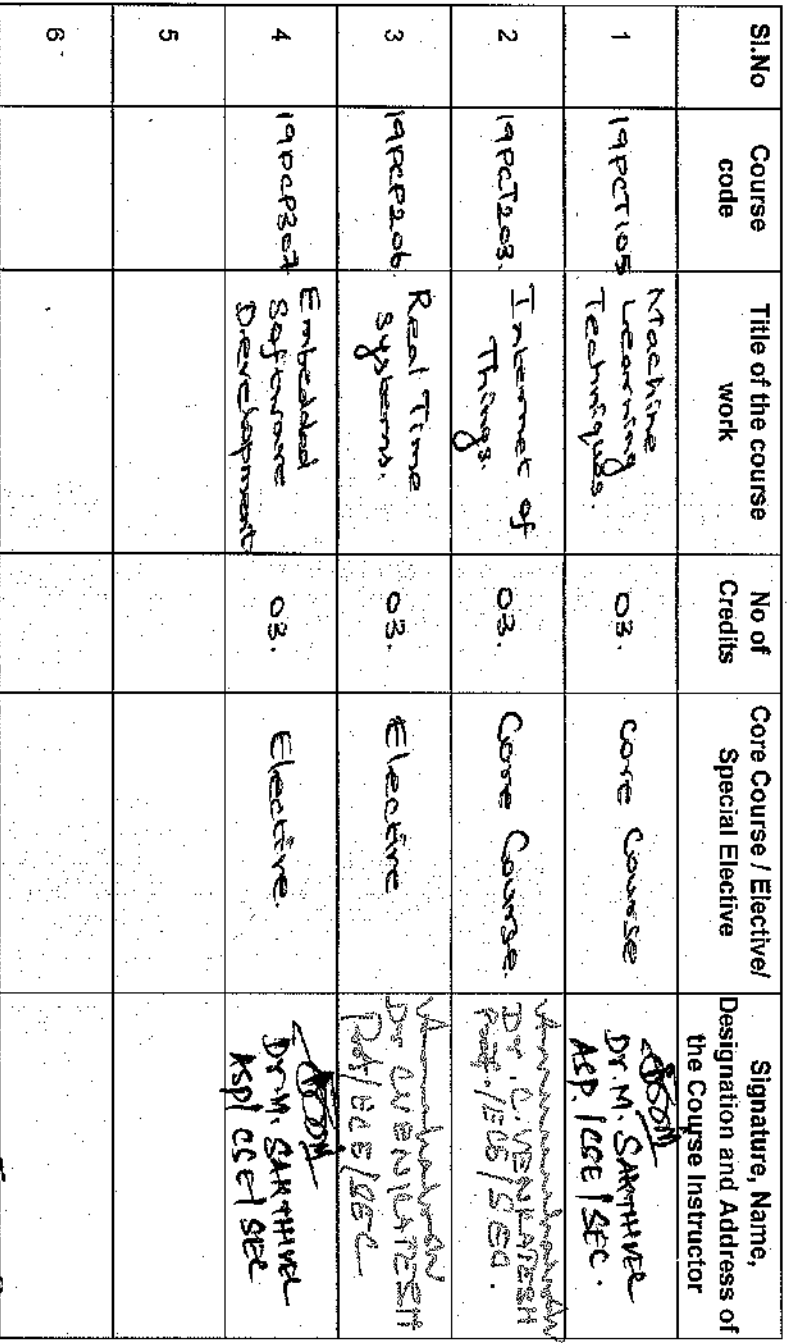 Sl.No
Course
code
Title of the course
work
No of
Credits
Core Course / Elective/
Special Elective
Signature, Name,
Designation and Address of
the Course Instructor
1
19PCT105
Machine
Learning
Techniques.
03.
Core Course
Dr. M. SAKTHIVEL
ASP. / CSE / SEC.
2
19PCT203.
Internet of
Things.
03.
Core Course.
Dr. C. VENKATESH
Prof. / ECE / SEC.
3
19PCP206.
Real Time
Systems.
03.
Elective
Dr C VENKATESH
Prof / ECE / SEC
4
19PCP307
Embedded
Software
Development
03.
Elective.
Dr. M. SAKTHIVEL
ASP / CSE / SEC
5
6